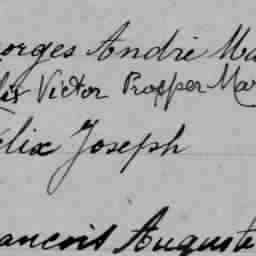 orges André Ma
lix Victor Prosper Mar
élix Joseph
ancois Auguste